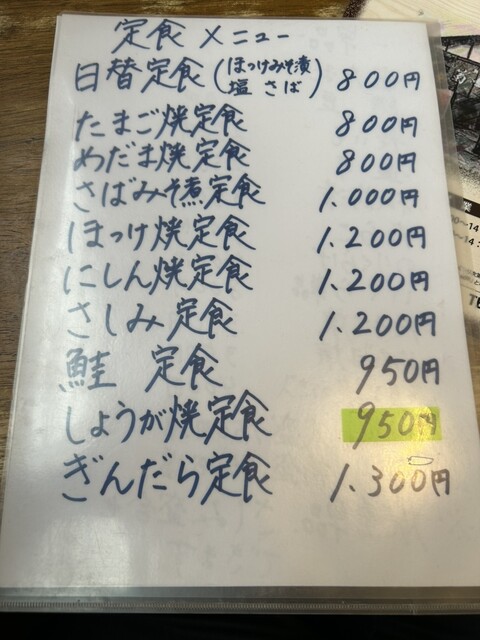 定食 メニュー
日替定食(ほっけみそ漬 塩さば) 800円
たまご焼定食 800円
めだま焼定食 800円
さばみそ煮定食 1.000円
ほっけ焼定食 1.200円
にしん焼定食 1.200円
さしみ定食 1.200円
鮭 定食 950円
しょうが焼定食 950円
ぎんだら定食 1.300円